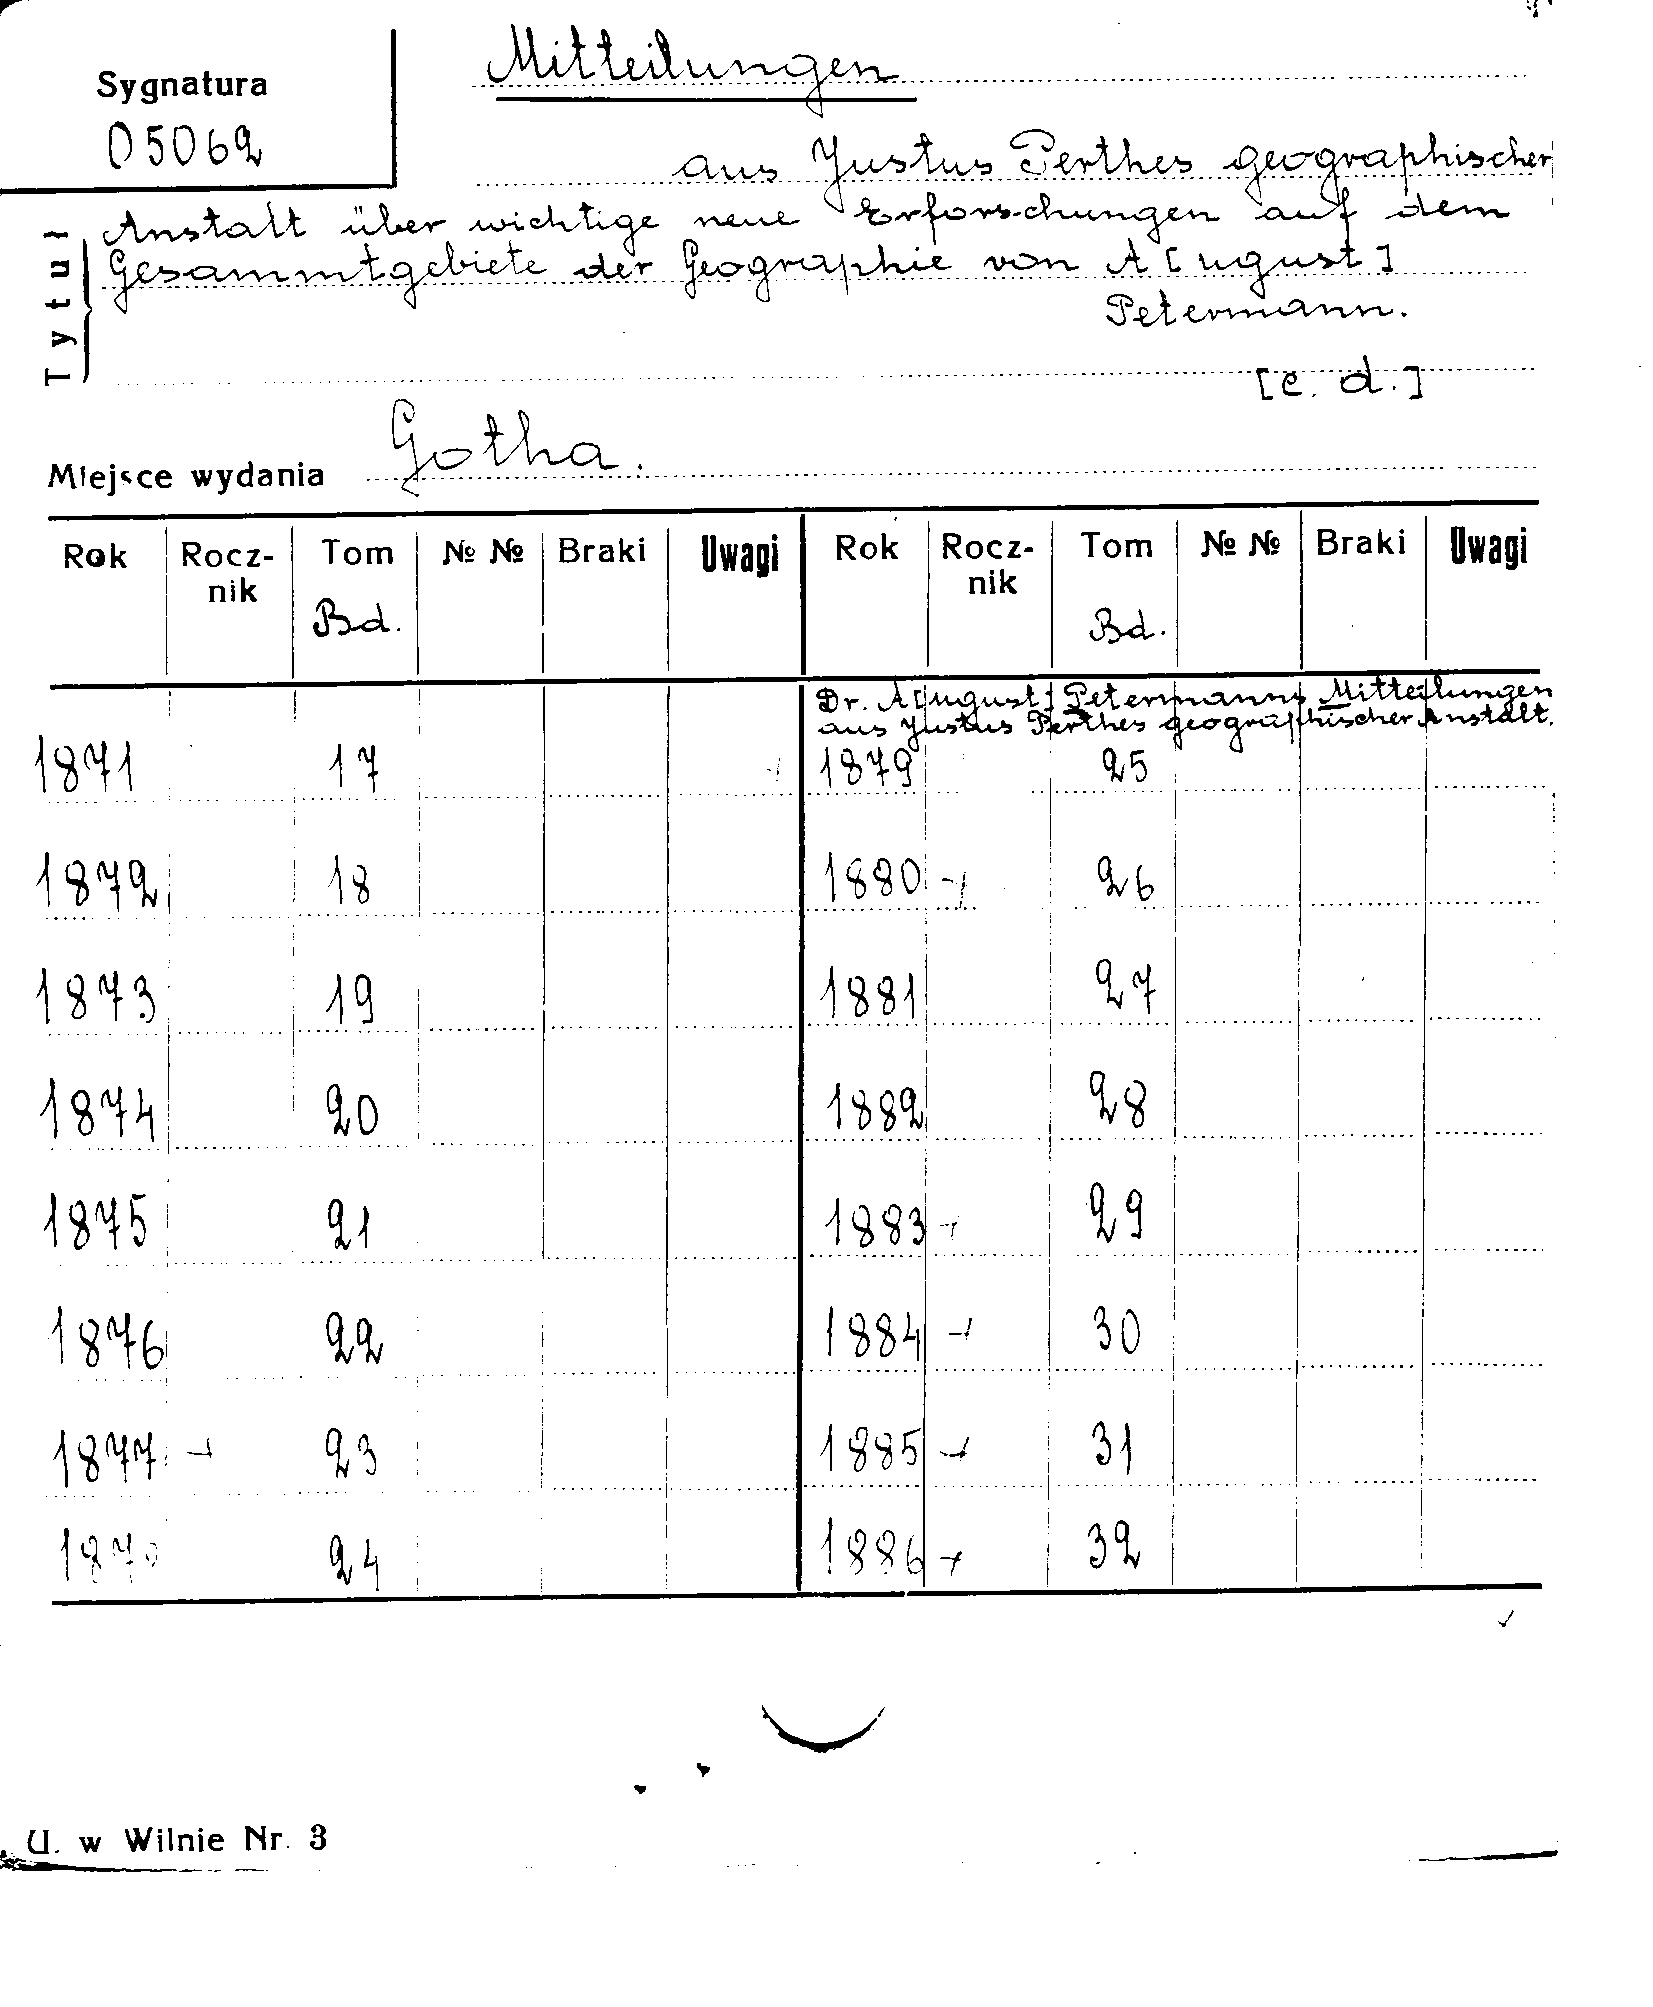 Sygnatura
05062
Mitteilungen
aus Justus Perthes geographischer
Tytuł
Anstalt über wichtige neue Erforschungen auf dem
Gesammtgebiete der Geographie von A[ugust]
Petermann.
[c. d.]
Miejsce wydania Gotha.
Rok Rocz-nik Tom Bd. № № Braki Uwagi Rok Rocz-nik Tom Bd. № № Braki Uwagi
Dr. A[ugust] Petermanns Mitteilungen
aus Justus Perthes geographischer Anstalt.
1871 17 1879 25
1872 18 1880 26
1873 19 1881 27
1874 20 1882 28
1875 21 1883 29
1876 22 1884 30
1877 23 1885 31
24 1886 32
U. w Wilnie Nr. 3